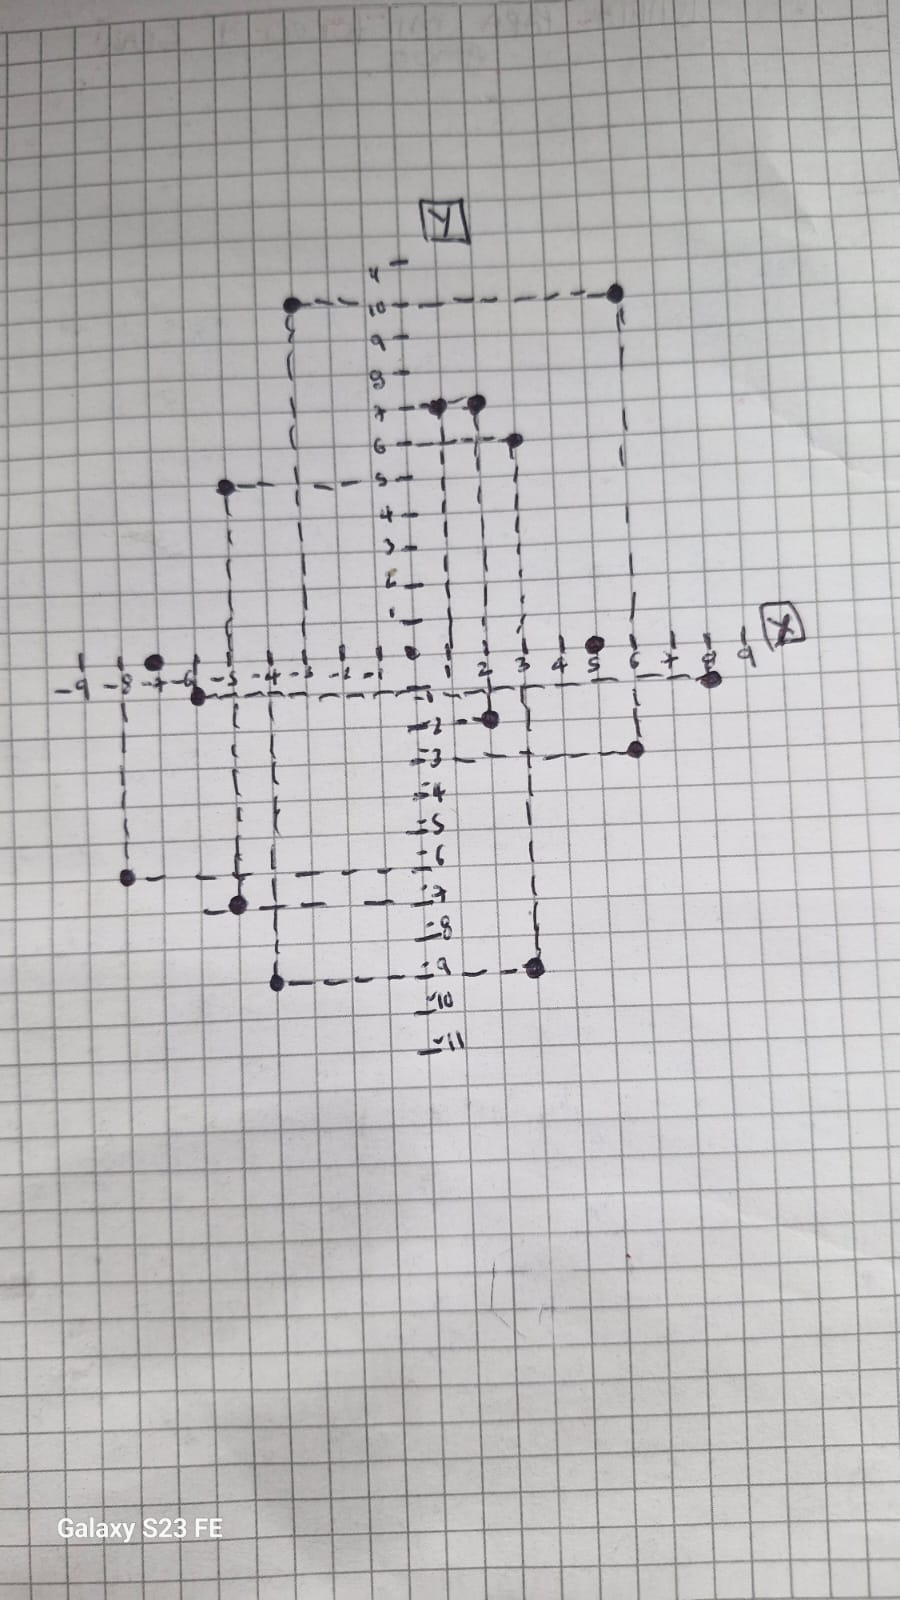 Y
11
10
9
8
7
6
5
4
3
0
-9 -8 -7 -6 -5 -4 -3 -2 -1 1 2 3 4 5 6 7 8 9 X
-1
-2
-3
-4
-5
-6
-7
-8
-9
-10
-11
Galaxy S23 FE